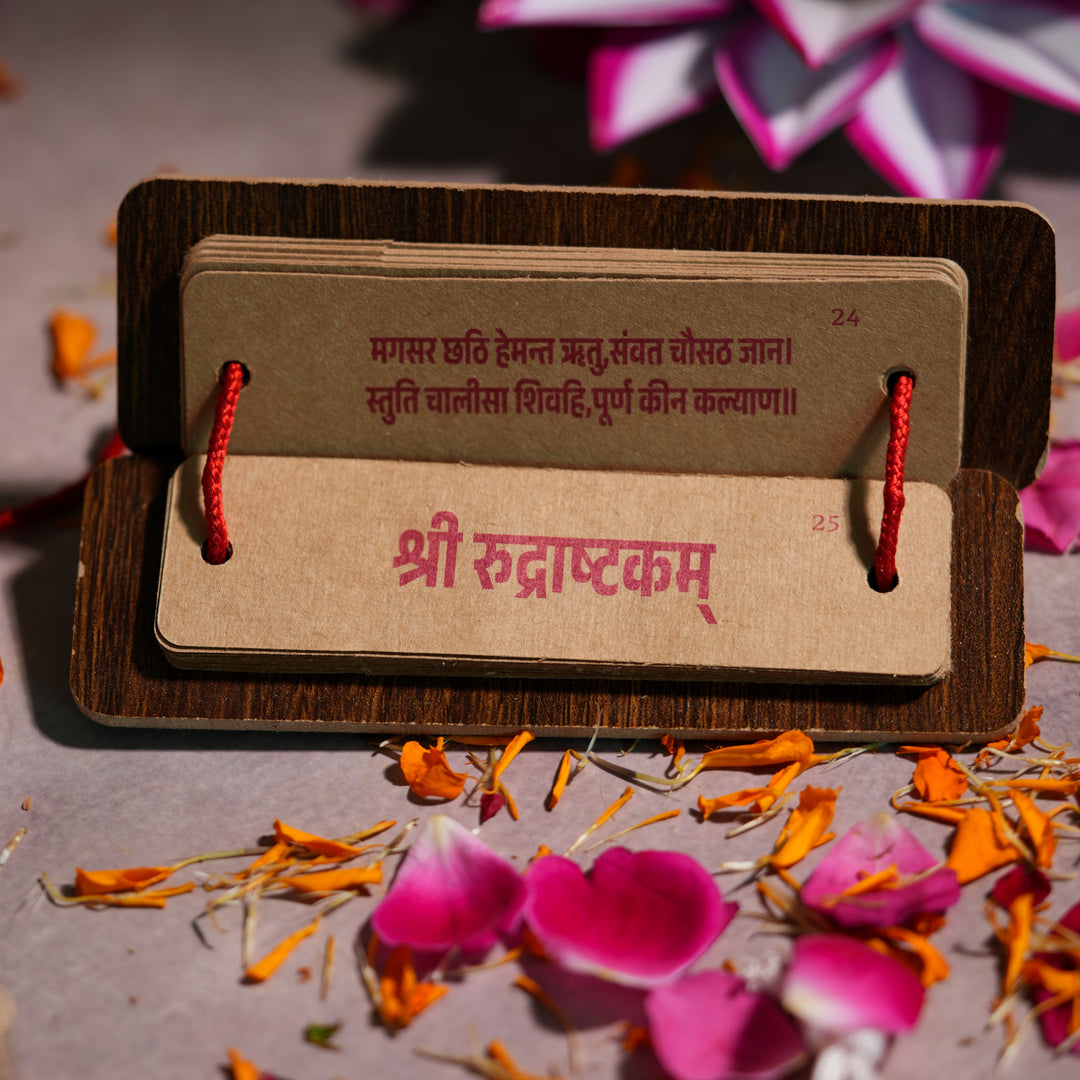 24
मगसर छठि हेमन्त ऋतु,संवत चौसठ जान।
स्तुति चालीसा शिवहि,पूर्ण कीन कल्याण॥
25
श्री रुद्राष्टकम्